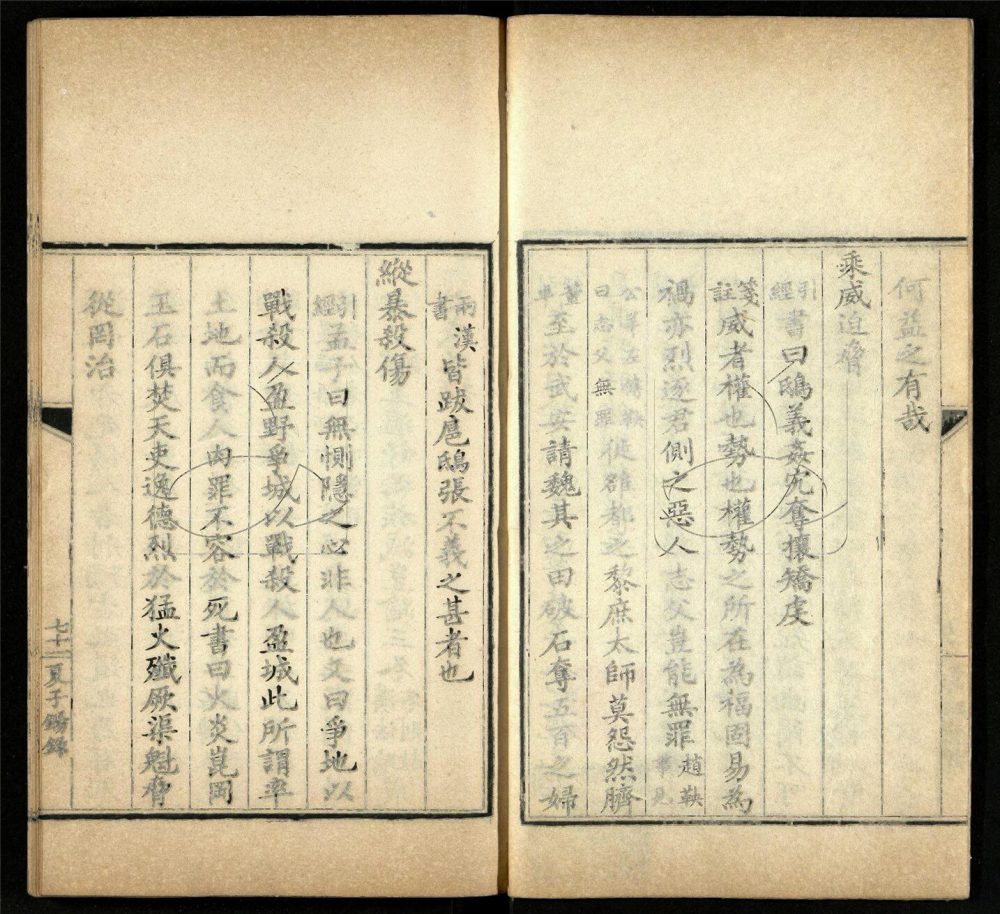 何益之有哉
乘威迫脅
引經書曰鴟義姦宄奪攘矯虔
箋註威者權也勢也權勢之所在為福固易為
禍亦烈逐君側之惡人志父豈能無罪趙鞅事見
公羊左傳鞅曰志父無罪從雒都之黎庶太師莫怨然臍
董卓至於武安請魏其之田破石奪五百之婦
兩漢書皆跋扈鴟張不義之甚者也
縱暴殺傷
引經孟子曰無惻隱之心非人也又曰爭地以
戰殺人盈野爭城以戰殺人盈城此所謂率
土地而食人肉罪不容於死書曰火炎崑岡
玉石俱焚天吏逸德烈於猛火殲厥渠魁脅
從罔治
七十一
夏子鍚錄